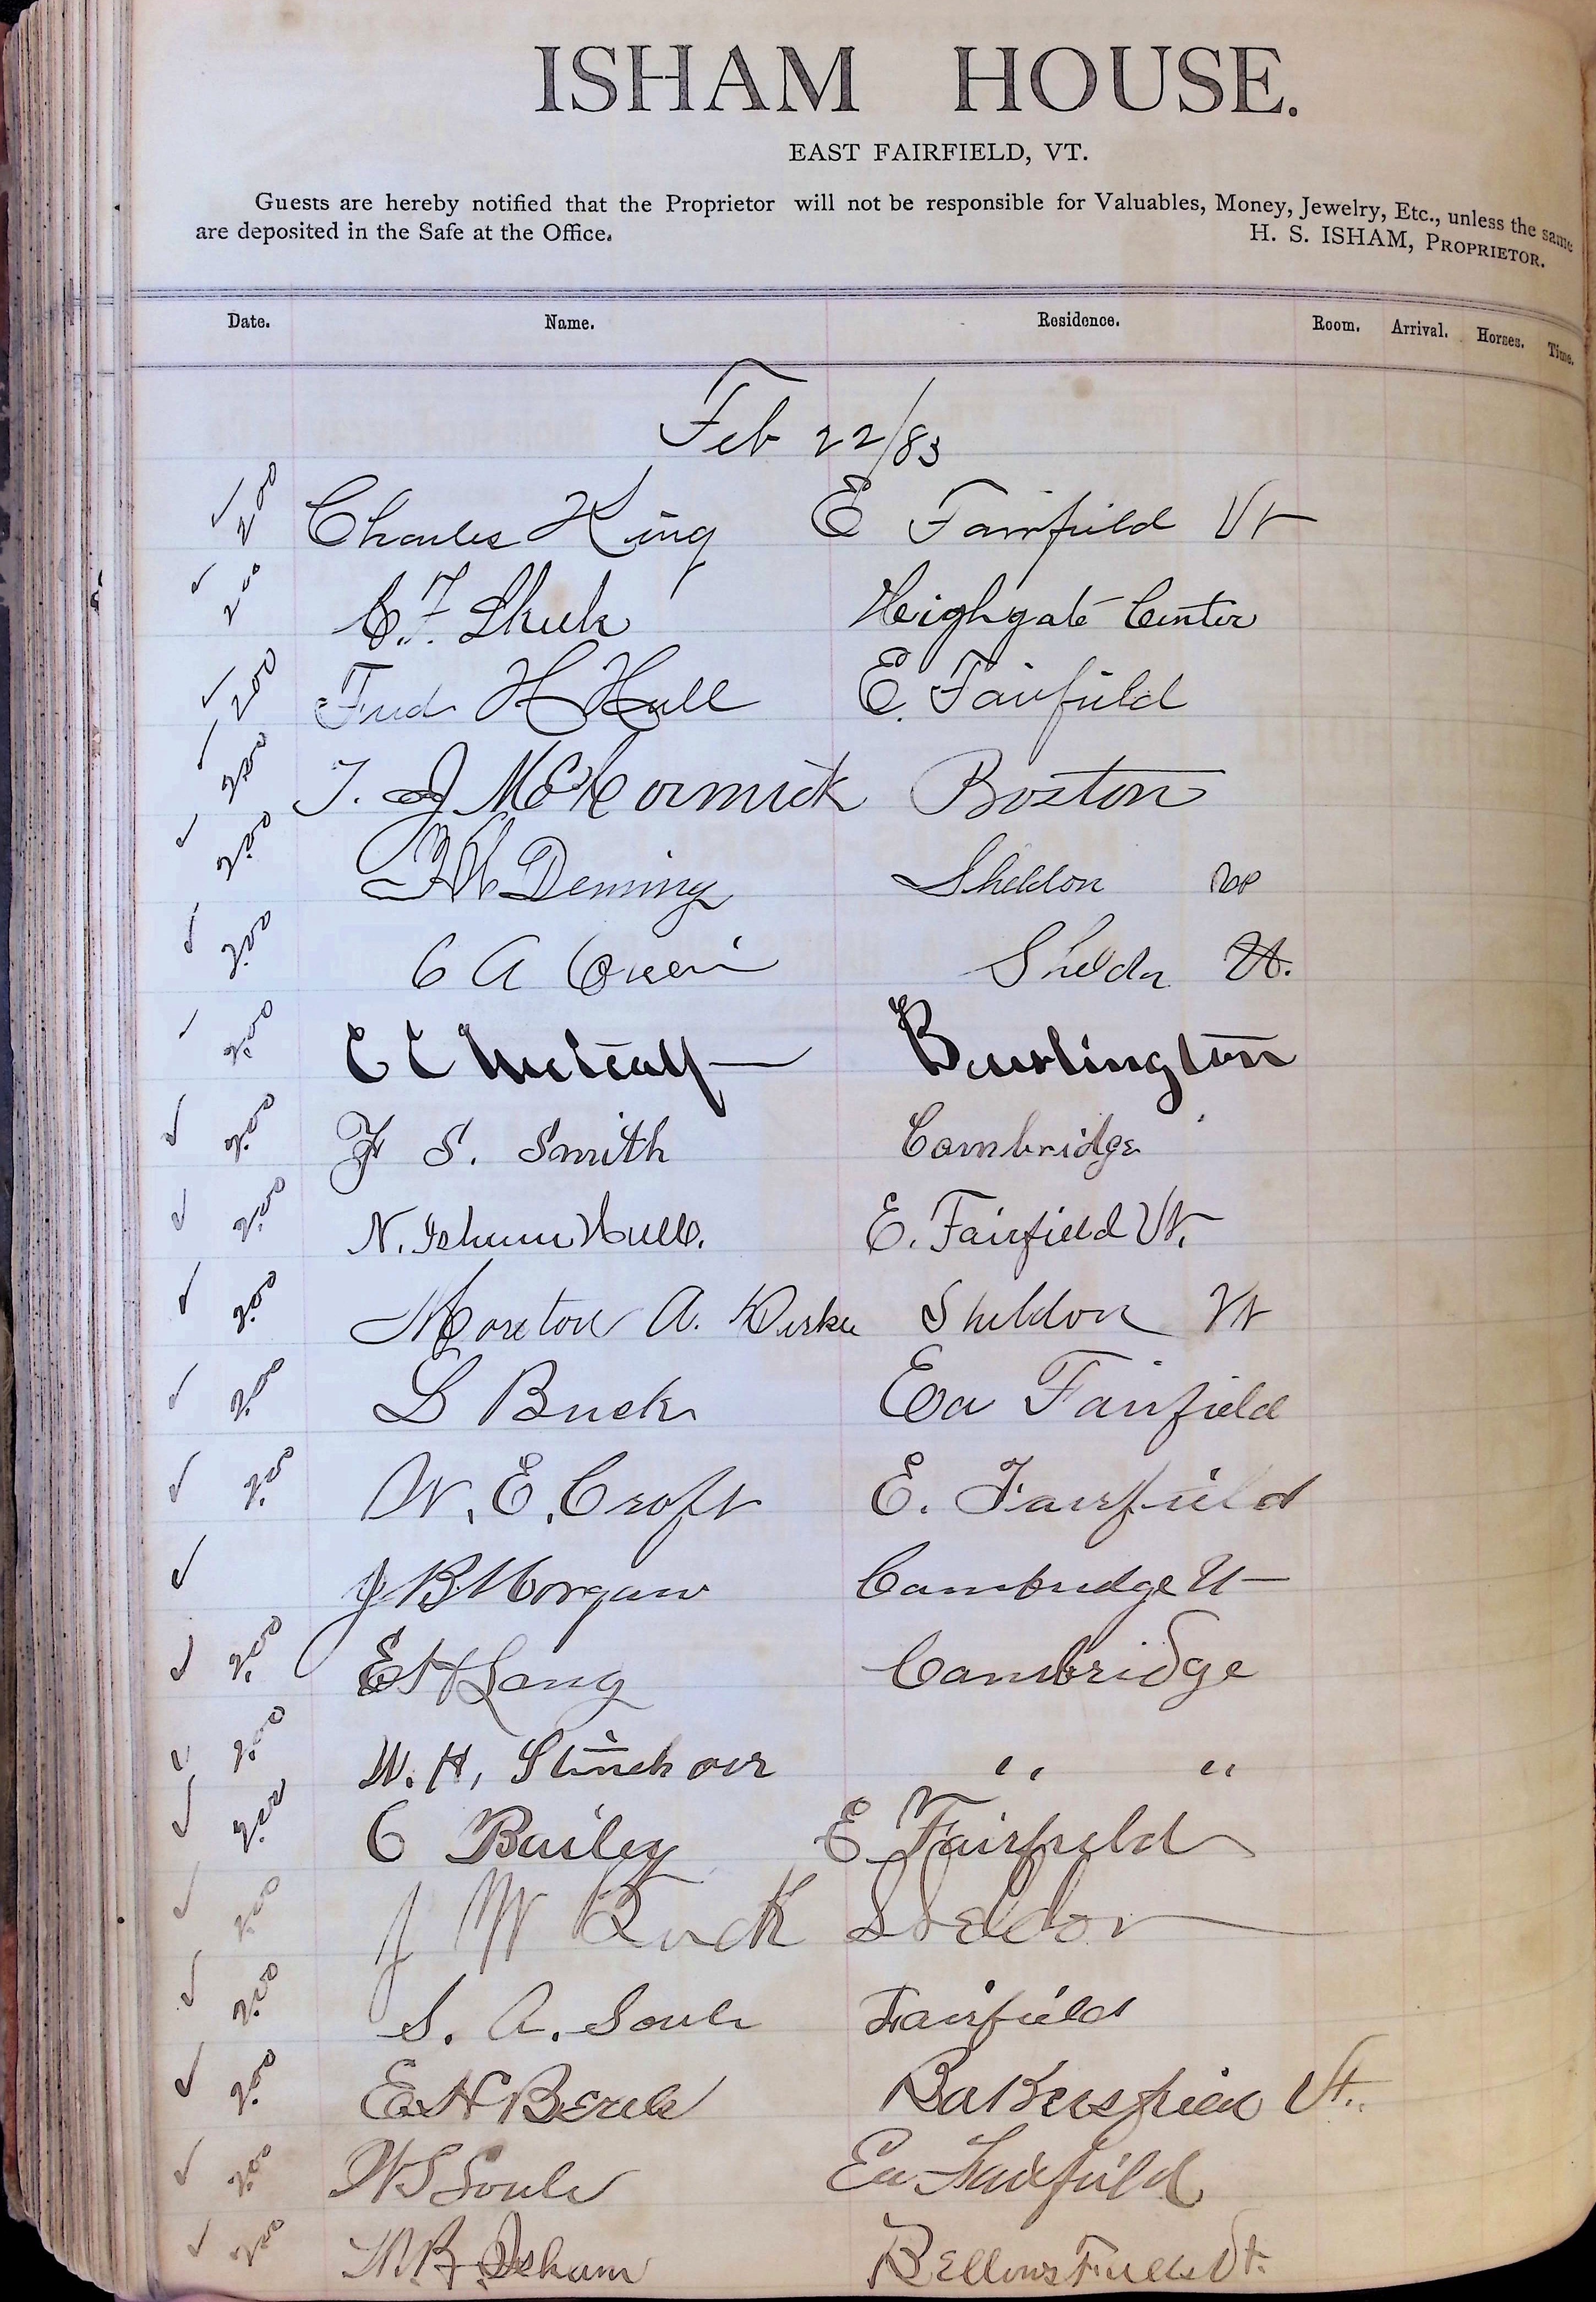 ISHAM HOUSE.
EAST FAIRFIELD, VT.
Guests are hereby notified that the Proprietor will not be responsible for Valuables, Money, Jewelry, Etc., unless the same
are deposited in the Safe at the Office.
H. S. ISHAM, PROPRIETOR.
Date. Name. Residence. Room. Arrival. Horses. Time.
Feb 22/83
✓ 200 Charles King E Fairfield Vt
✓ 200 C. F. Heighgate Center
✓ 200 Fred H Hull E. Fairfield
✓ 200 T. J McCormick Boston
✓ 2.00 Deming Sheldon
✓ 2.00 C A Sheldon Vt.
✓ 2.00 C C Metcalf Burlington
✓ 2.00 F S. Smith Cambridge
✓ 2.00 N. Isham Hull. E. Fairfield Vt.
✓ 2.00 A. Sheldon Vt
✓ 2.00 L Buck Ea Fairfield
✓ 2.00 W. E. Croft E. Fairfield
✓ J B Morgan Cambridge Vt
✓ 2.00 E H Lang Cambridge
✓ 2.00 W. H. Stinehour " "
✓ 2.00 C Bailey E Fairfield
✓ 2.00 J W Sheldon
✓ 2.00 S. A. Soule Fairfield
✓ 2.00 E H Bakersfield Vt.
✓ 2.00 W S Soule Ea Fairfield
✓ 2.00 Isham Bellows Falls Vt.